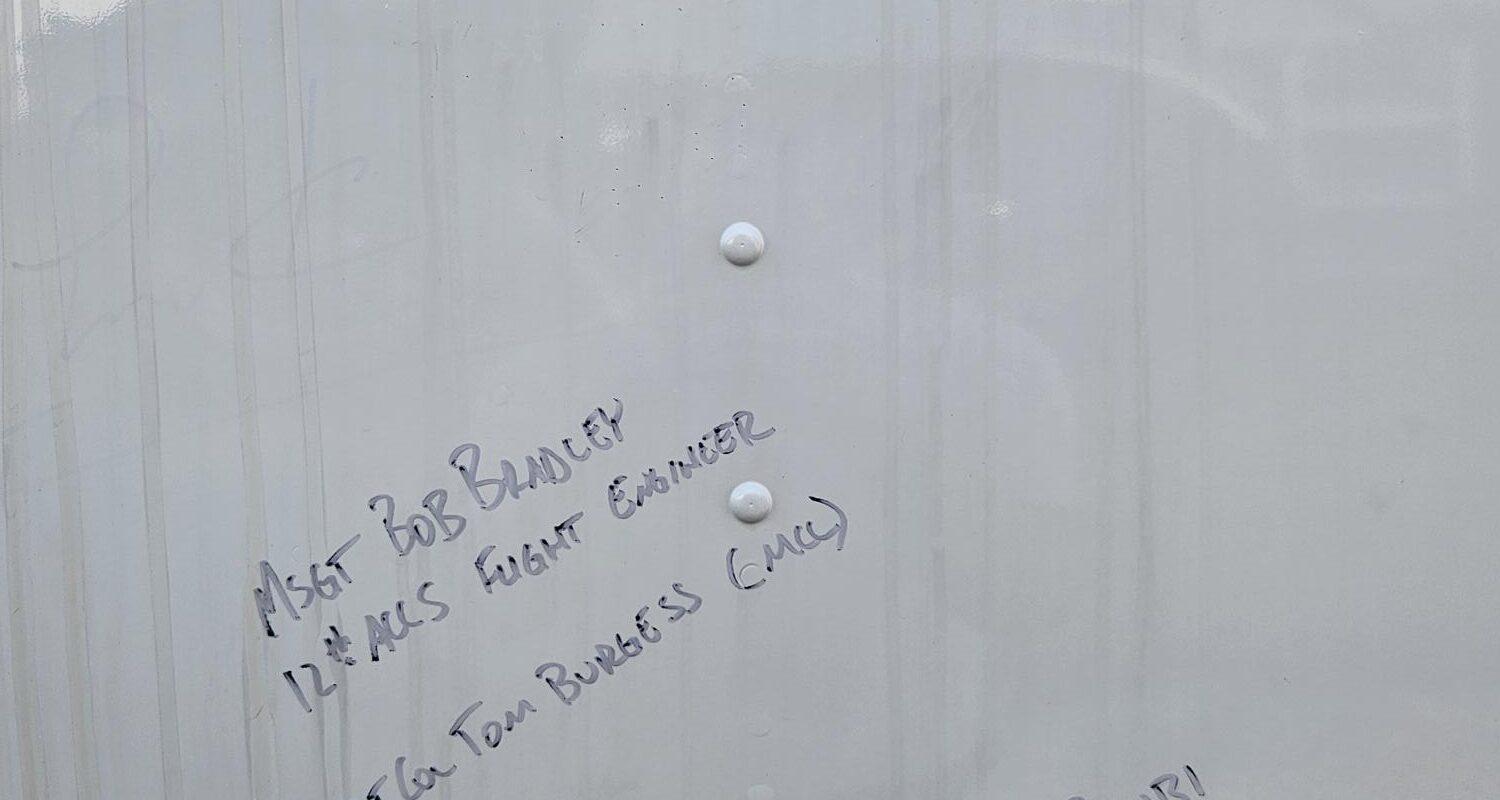 MSGT BOB BRADLEY
12th ACCS FLIGHT ENGINEER
TOM BURGESS (MCC)